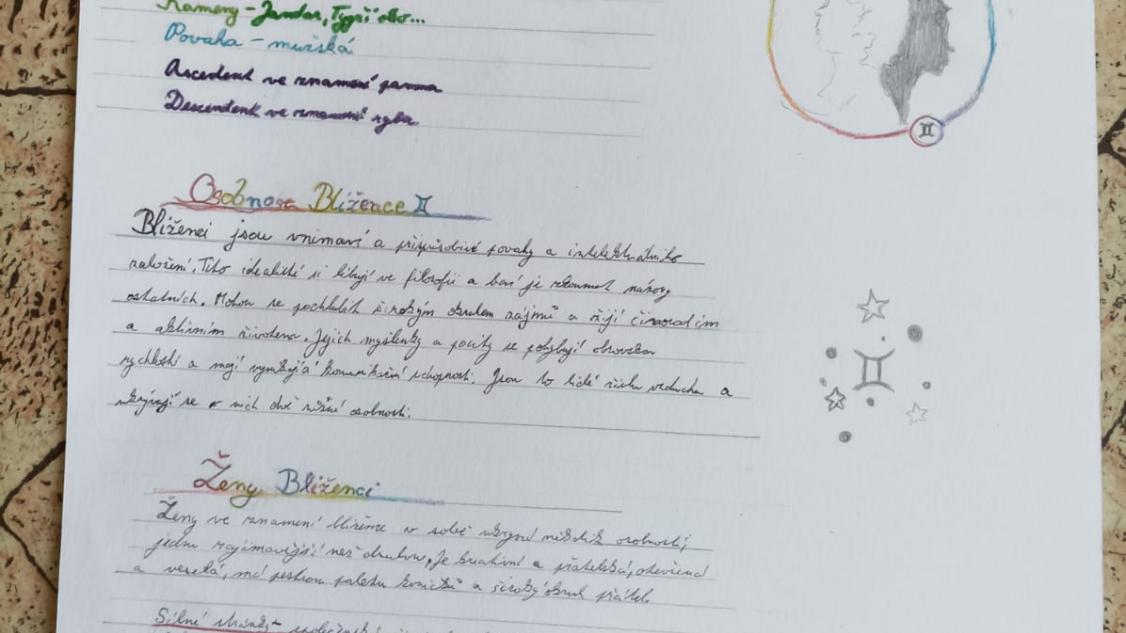 Kameny - Jantar, Tygří oko...
Povaha - mužská
Ascedent ve znamení panna
Descendent ve znamení ryba
Osobnost Blížence ♊
Blíženci jsou vnímaví a přizpůsobivé povahy a intelektuálního
založení. Tito idealisté si libují ve filosofii a baví je zkoumat názory
ostatních. Mohou se pochlubit širokým okruhem zájmů a žijí
a aktivním životem. Jejich myšlenky a pocity se pohybují obrovskou
rychlostí a mají vynikající komunikační schopnosti. Jsou to lidé vzduchu a
ukrývají se v nich dvě různé osobnosti.
Ženy Blíženci
Ženy ve znamení blížence v sobě ukrývá několik osobností,
jednu zajímavější než druhou. Je kreativní a přátelská, otevřená
a veselá, má pestrou paletu koníčků a široký okruh přátel.
Silné stránky -
♊
♊